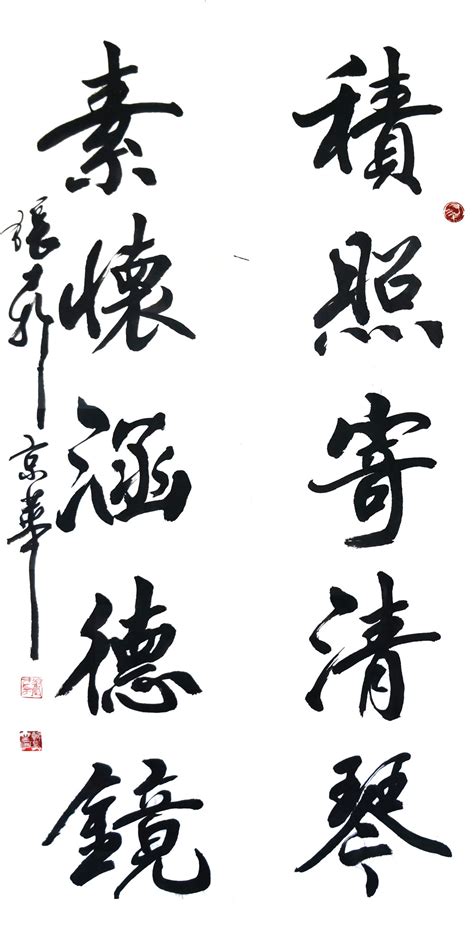 積照寄清琴
素懷涵德鏡
張 京華